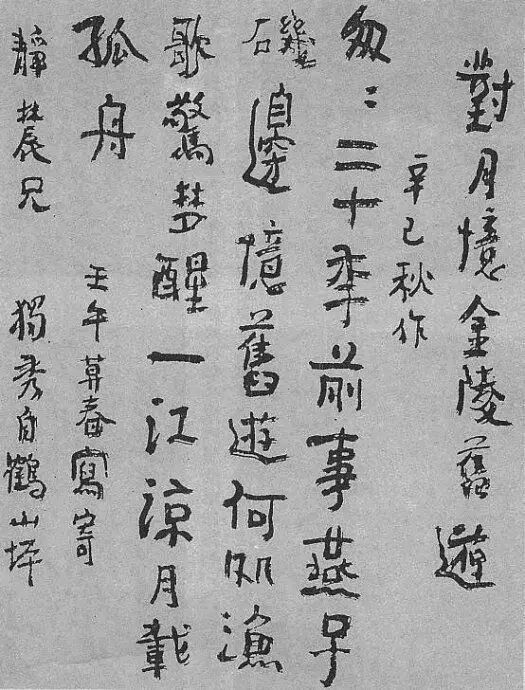 對月憶金陵舊遊
辛巳秋作
匆：二十年前事燕子
磯邊憶舊遊何処漁
歌驚夢醒一江涼月載
孤舟
壬午暮春寫寄
靜農兄
獨秀自鶴山坪